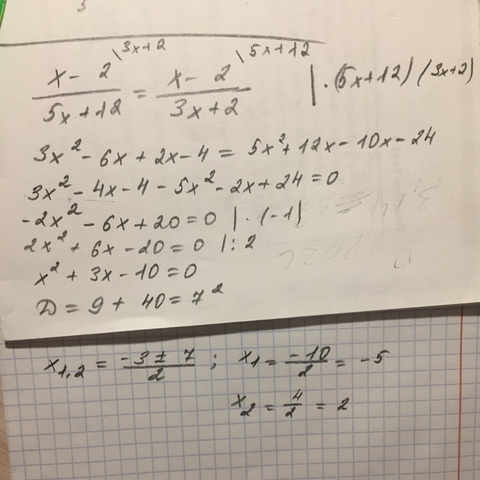 5
\3x+2 \5x+12
x-2/5x+12 = x-2/3x+2 | · (5x+12) (3x+2)
3x² - 6x + 2x - 4 = 5x² + 12x - 10x - 24
3x² - 4x - 4 - 5x² - 2x + 24 = 0
-2x² - 6x + 20 = 0 | · (-1)
2x² + 6x - 20 = 0 | : 2
x² + 3x - 10 = 0
D = 9 + 40 = 7²
x1,2 = -3 ± 7/2 ; x1 = -10/2 = -5
x2 = 4/2 = 2